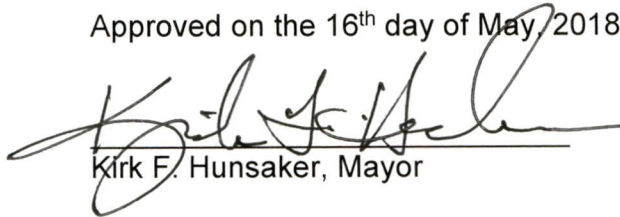 Approved on the 16th day of May, 2018
Kirk F. Hunsaker
Kirk F. Hunsaker, Mayor